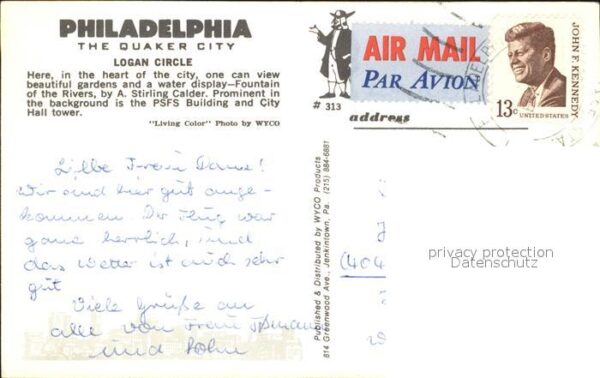 PHILADELPHIA
THE QUAKER CITY
LOGAN CIRCLE
Here, in the heart of the city, one can view
beautiful gardens and a water display—Fountain
of the Rivers, by A. Stirling Calder. Prominent in
the background is the PSFS Building and City
Hall tower.
"Living Color" Photo by WYCO
# 313
AIR MAIL
PAR AVION
JOHN F. KENNEDY
13c UNITED STATES
address
Liebe Frau
Wir sind hier gut ange-
kommen. Der Flug war
ganz herrlich, und
das Wetter ist auch sehr
gut
Viele Grüße an
alle von Frau
und Sohn
Published & Distributed by WYCO Products
814 Greenwood Ave., Jenkintown, Pa. (215) 884-6881
(404
privacy protection
Datenschutz